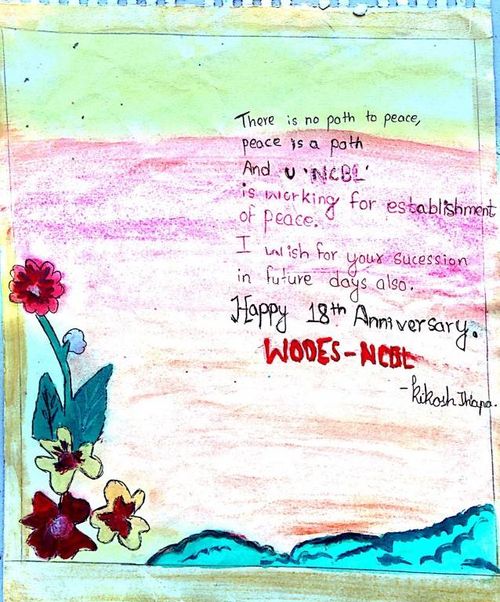 There is no path to peace,
peace is a path
And U 'NCBL'
is working for establishment
of peace.
I wish for your sucession
in future days also.
Happy 18th Anniversary.
WODES-NCBL
-Kikosh Thapa.